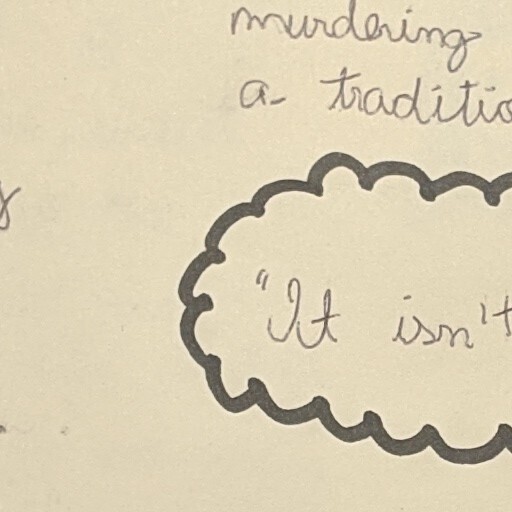 murdering
a traditio
"It isn't